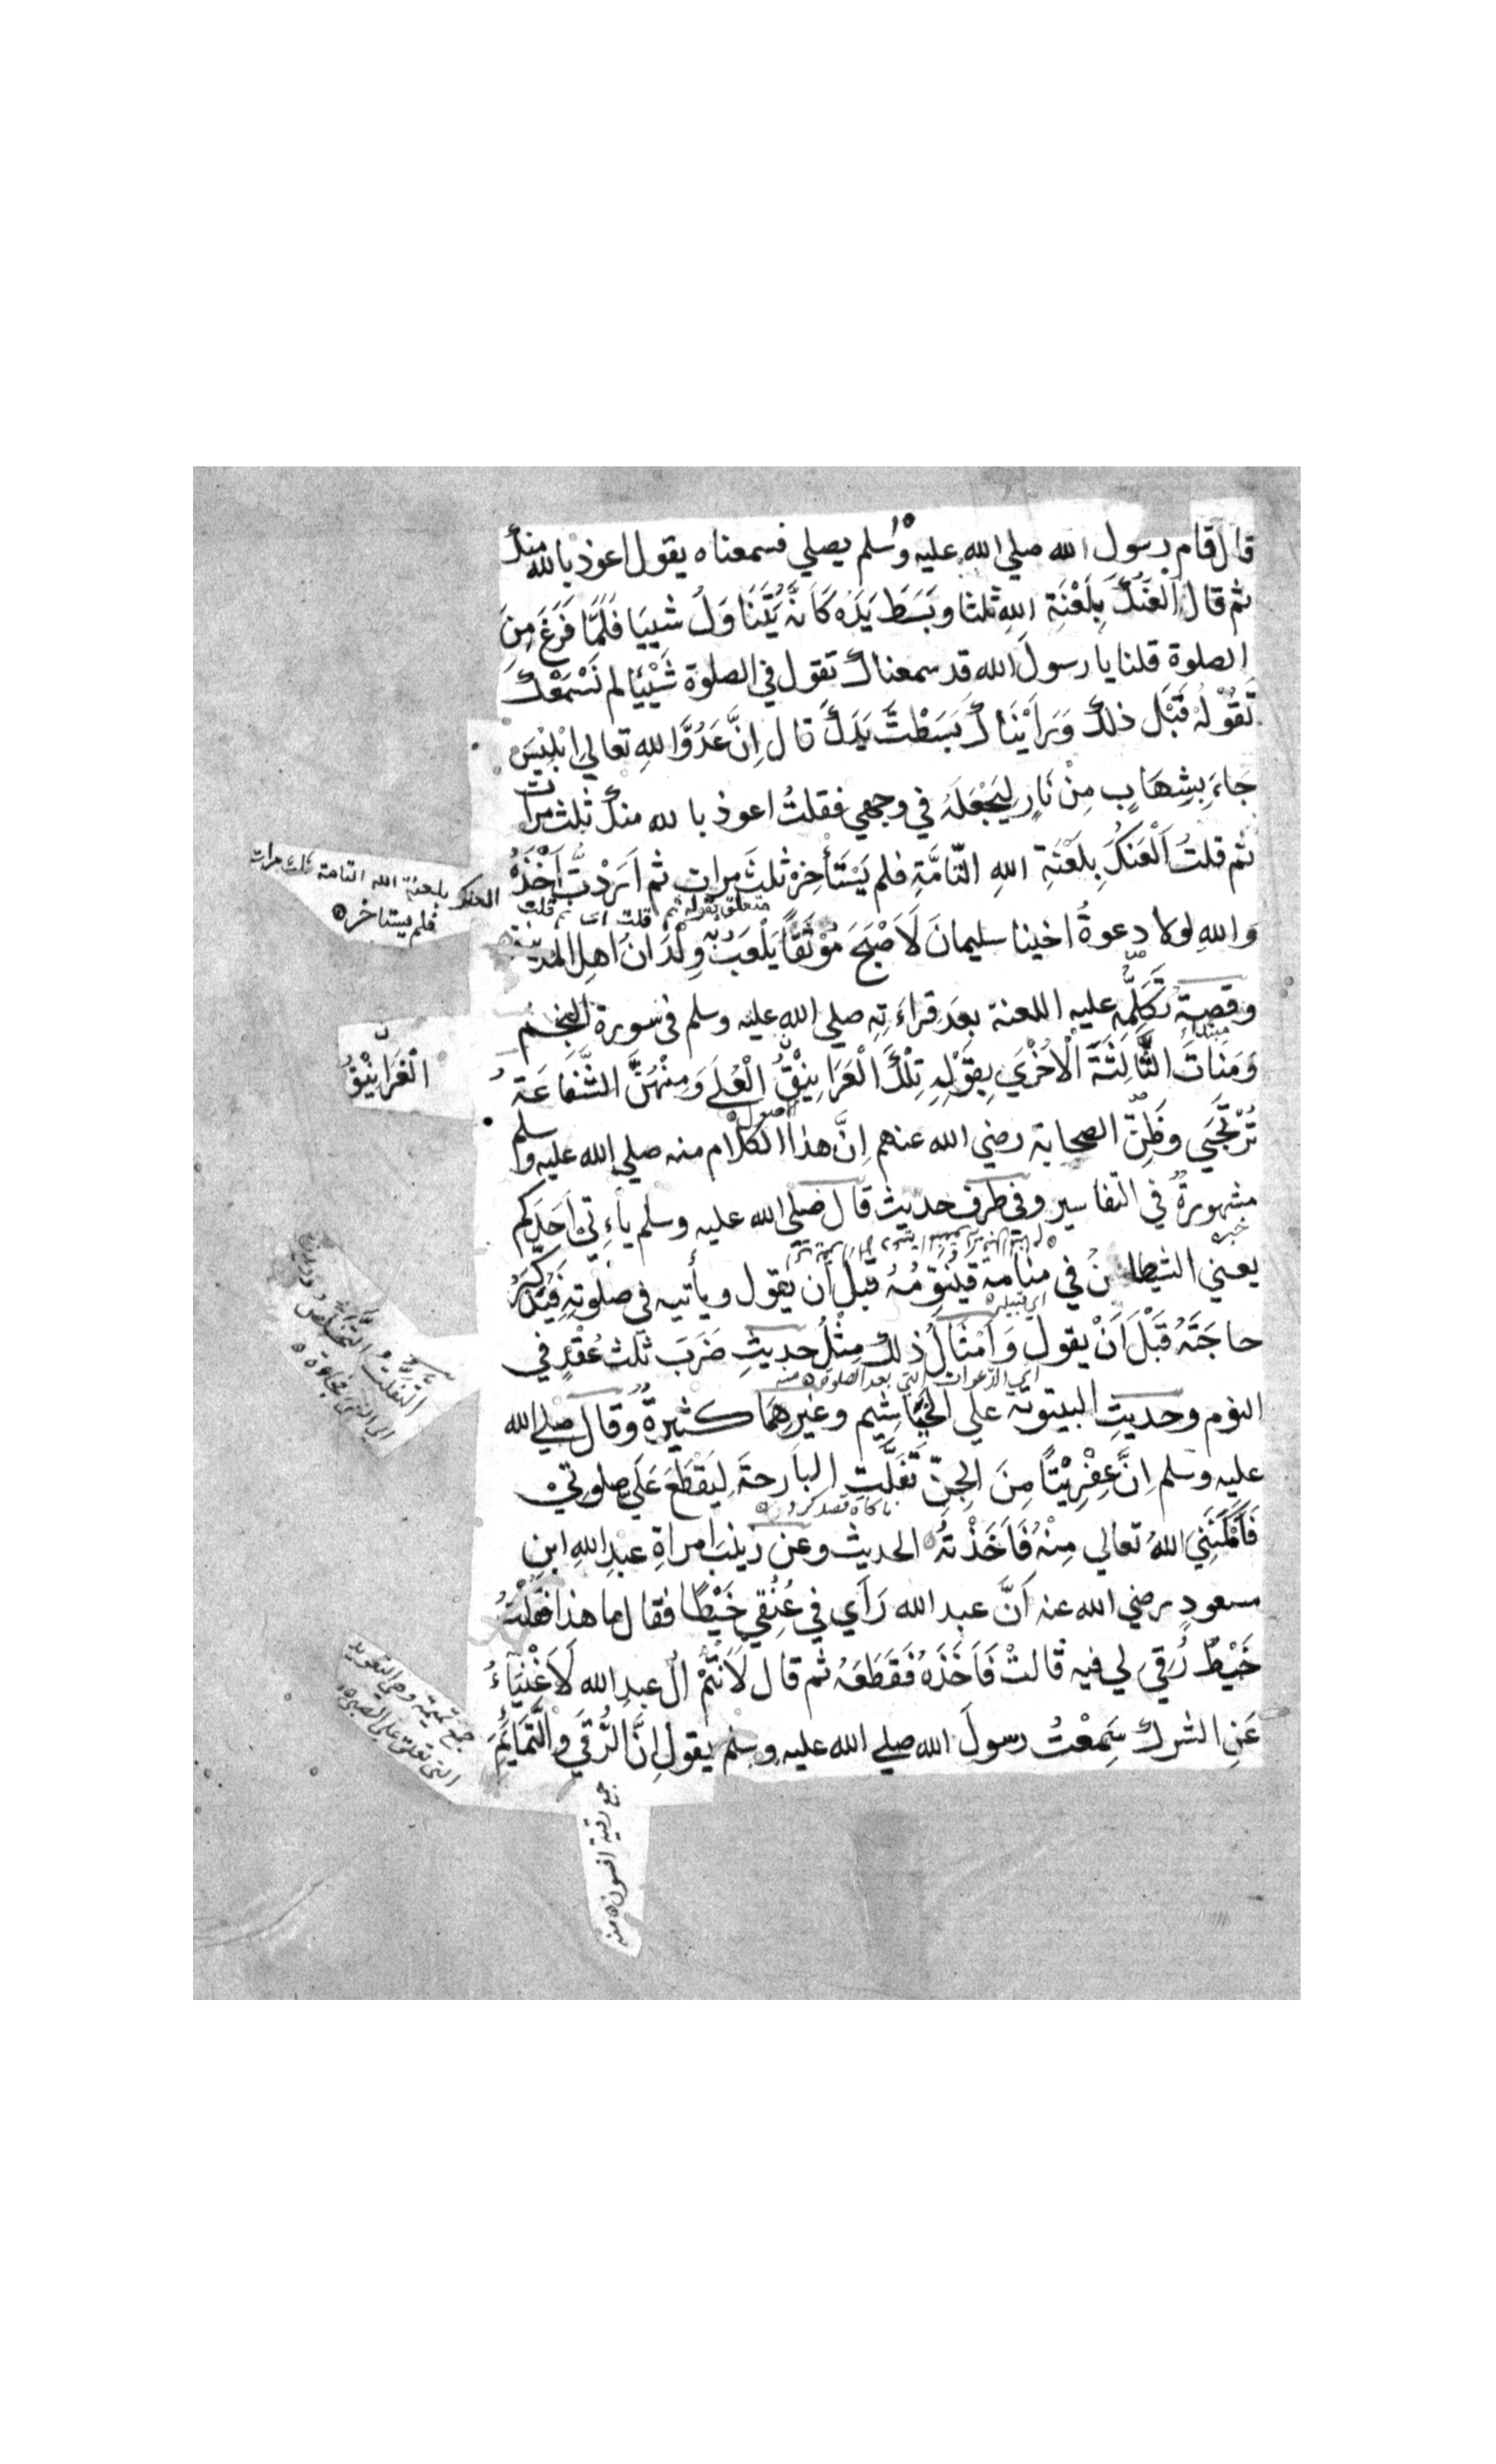 قال قام رسول الله صلي الله عليه وسلم يصلي فسمعناه يقول اعوذ بالله منك
ثم قال اَلْعَنُكَ بِلَعْنَةِ اللهِ ثلثا وبَسَطَ يَدَهُ كَاَنَّهُ يَتَنَاوَلُ شيئا فَلَمَّا فَرَغَ مِنَ
الصلوة قلنا يا رسول الله قد سمعناك تقول في الصلوة شَيْئًا لم نَسْمَعْكَ
تَقُوْلُهُ قَبْلَ ذلك وَرَاَيْنَاكَ بَسَطْتَ يَدَكَ قال اِنَّ عَدُوَّ اللهِ تعالي اِبْلِيْسَ
جَاءَ بِشِهَابٍ مِنْ نَارٍ لِيَجْعَلَهُ في وجهي فقلتُ اعوذ بالله منك ثلث مرات
ثم قلتُ اَلْعَنُكَ بِلَعْنَةِ اللهِ التَّامَّةِ فلم يَسْتَأْخِرْ ثلثَ مرات ثم اَرَدْتُ اَخْذَهُ
العنك بلعنة الله التامة ثلث مرات
فلم يستاخر
متعلق بقوله ثم قلت اي ثم قلت
وَاللهِ لولا دعوةُ اخينا سليمانَ لَاَصْبَحَ مُوْثَقًا يَلْعَبُ بِهِ وِلْدَانُ اهلِ المدينة
وقصةُ تَكَلُّمِهِ عليه اللعنة بعد قراءتِه صلي الله عليه وسلم في سورة النجم
مبتداء
وَمَنَاتَ الثَّالِثَةَ الْاُخْرَي بِقَوْلِهِ تِلْكَ الْغَرَانِيْقُ الْعُلَي وَمِنْهُنَّ الشَّفَاعَةُ
الْغَرَانِيْقُ
تُرْتَجَي وظَنِّ الصحابة رضي الله عنهم اِنَّ هذا الكلام منه صلي الله عليه وسلم
مشهورةٌ في التفاسير وفي طرف حديث قال صلي الله عليه وسلم يأتي اَحَدَكم
خبره
يعني الشيطان في منامه فيُنَوِّمُهُ قبل ان يقول ويأتيه في صلوته فَيُذَكِّرُهُ
حاجَتَهُ قَبْلَ اَنْ يقول وَاَمْثَالُ ذلك مِثْلُ حديثِ ضَرَبَ ثلث عُقَدٍ في
اي الدعوات التي بعد الصلوة منه
النوم وحديثِ البيتوتة علي الخَيَاشِيم وغيرِهما كثيرةٌ وقال صلي الله
عليه وسلم اِنَّ عِفْرِيْتًا مِنَ الجِنِّ تَفَلَّتَ البارحةَ لِيَقْطَعَ عَلَيَّ صلوتي
ناكاه قصد كرد
التفلت والتخلص
الي الشئ فجاءة
فَاَمْكَنَنِيَ اللهُ تعالي مِنْهُ فَاَخَذْتُهُ الحديث وعن زينبَ امراةِ عبدِ اللهِ ابنِ
مسعودٍ رضي الله عنه اَنَّ عبد الله رَاَي في عُنُقِي خَيْطًا فقال ما هذا فقُلْتُ
خَيْطٌ رُقِيَ لي فيه قالتْ فَاَخَذَهُ فَقَطَعَهُ ثم قال لَاَنْتُمْ اٰلَ عبدِ الله لَاَغْنِيَاءُ
عَنِ الشرك سَمِعْتُ رسولَ الله صلي الله عليه وسلم يقول اِنَّ الرُّقَي وَالتَّمَايِمَ
جمع تميمة وهي التعويذ
التي تعلق علي الصبي
جمع رقية افسون منه